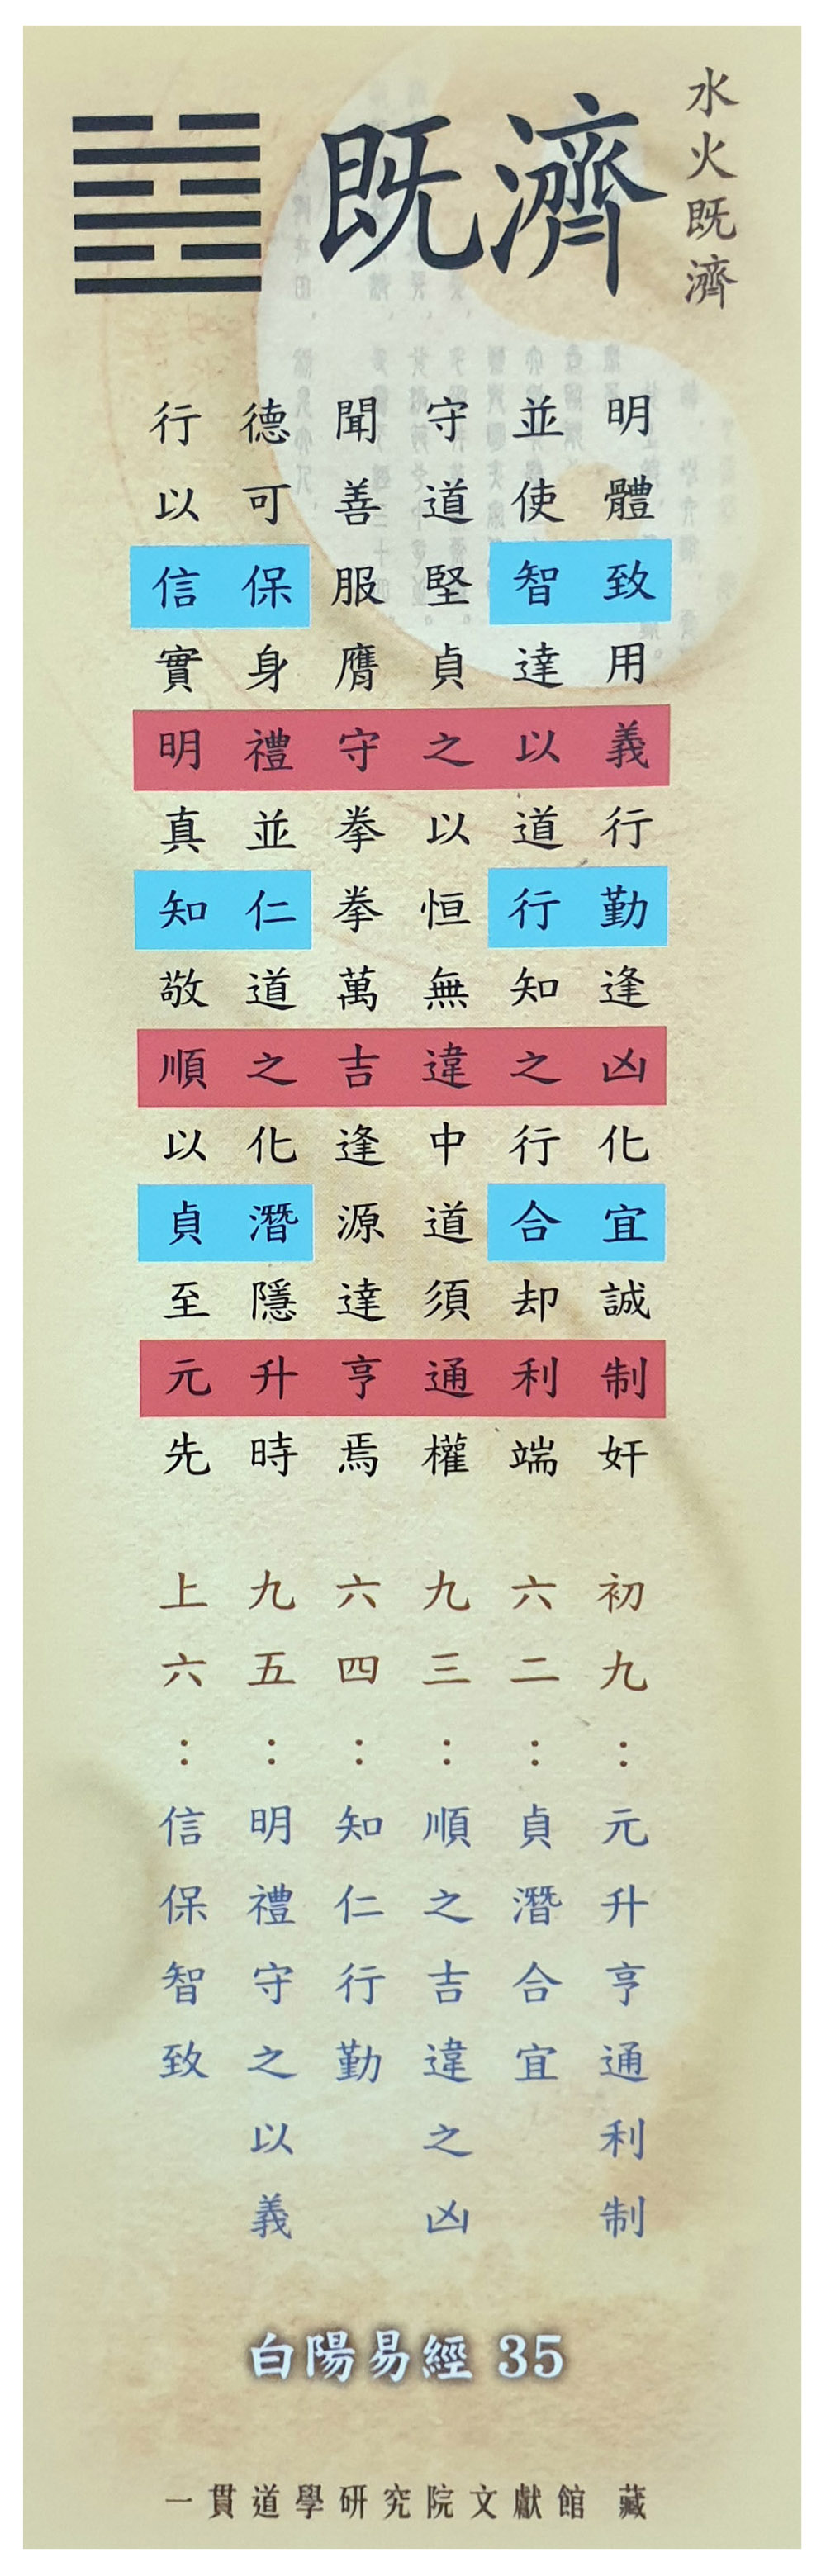 水火既濟
既濟
明體致用義行勤逢凶化宜誠制奸
並使智達以道行知之行合却利端
守道堅貞之以恒無違中道須通權
聞善服膺守拳拳萬吉逢源達亨焉
德可保身禮並仁道之化潛隱升時
行以信實明真知敬順以貞至元先
初九：元升亨通利制
六二：貞潛合宜
九三：順之吉違之凶
六四：知仁行勤
九五：明禮守之以義
上六：信保智致
白陽易經 35
一貫道學研究院文獻館 藏